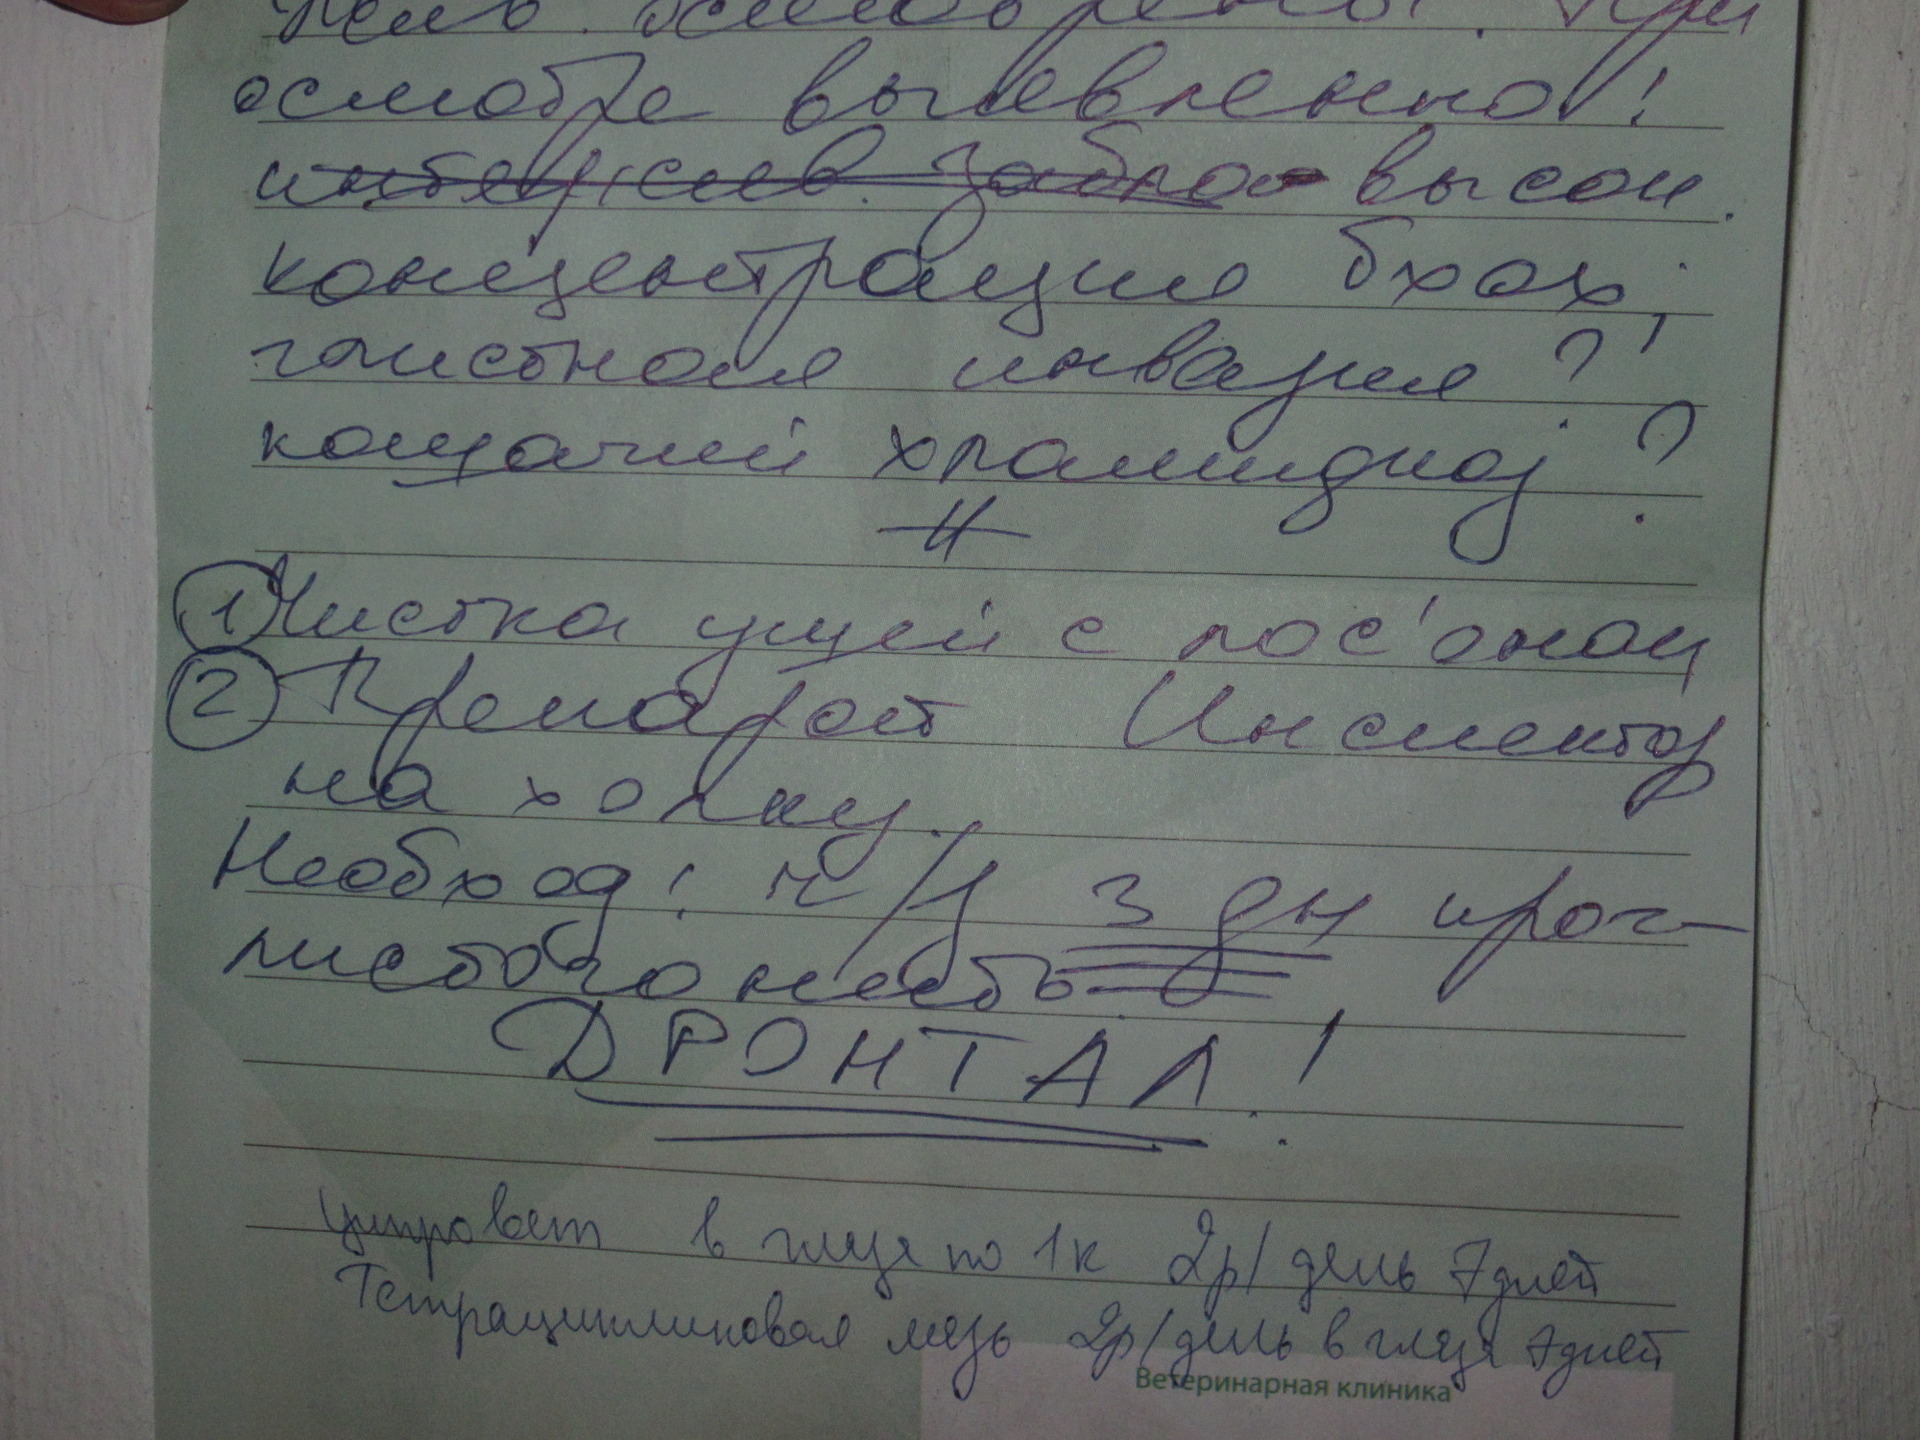 осмотре выявленно!
высок.
концентрация блох;
глистная инвазия?
кошачий хламидиоз?
1 Чистка ушей с лос'оном
2 Препарат Инспектор
на холку.
Необход: ч/з 3 дн прог-
листогонеть
ДРОНТАЛ!
Ципровет в глаза по 1к 2р/день 7дней
Тетрациклиновая мазь 2р/день в глаза 7дней
Ветеринарная клиника